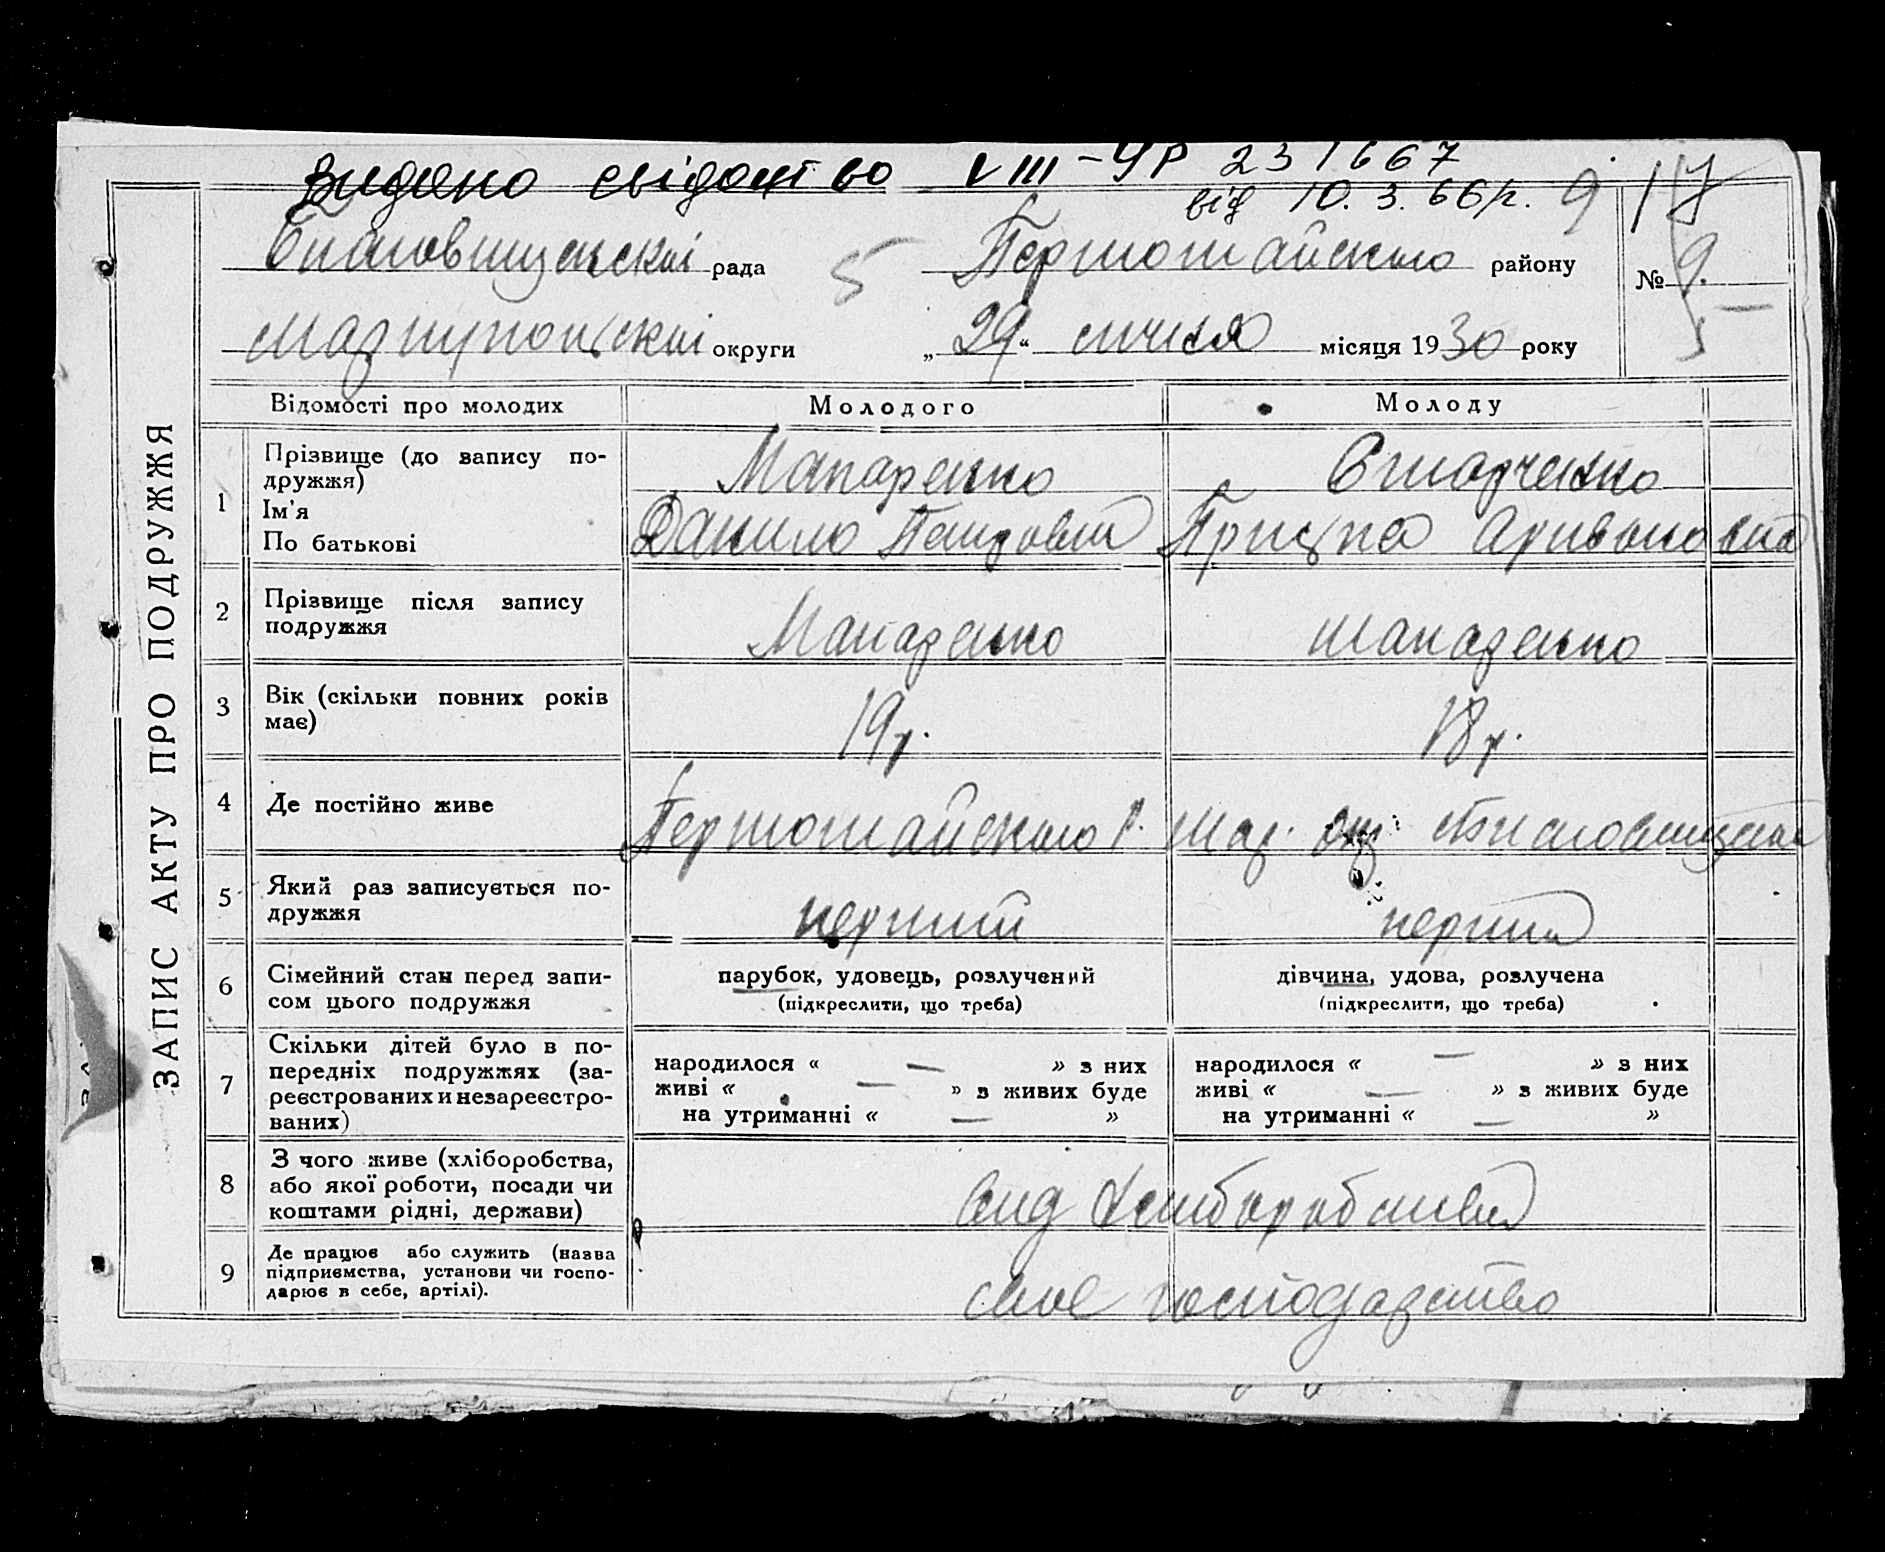 Видано свідоцтво VIII-УР 231667
від 10.3.66р. 9 17
рада 5 Першотравського району № 9.
Маріупольскої округи „29“ січня місяця 1930 року
ЗАПИС АКТУ ПРО ПОДРУЖЖЯ
Відомості про молодих Молодого Молоду
1 Прізвище (до запису по-
дружжя)
Ім'я
По батькові
Макаренко
Данило
2 Прізвище після запису
подружжя
Макаренко Макаренко
3 Вік (скільки повних років
має)
19р. 18р.
4 Де постійно живе
Мар. окр.
5 Який раз записується по-
дружжя
перший перший
6 Сімейний стан перед запи-
сом цього подружжя
парубок, удовець, розлучений
(підкреслити, що треба)
дівчина, удова, розлучена
(підкреслити, що треба)
7 Скільки дітей було в по-
передніх подружжях (за-
реєстрованих и незареєстро-
ваних)
народилося « — » з них
живі « — » з живих буде
на утриманні « — »
народилося « — » з них
живі « — » з живих буде
на утриманні « — »
8 З чого живе (хліборобства,
або якої роботи, посади чи
коштами рідні, держави)
від хліборобства
9 Де працює або служить (назва
підприємства, установи чи госпо-
дарює в себе, артілі).
своє господарство